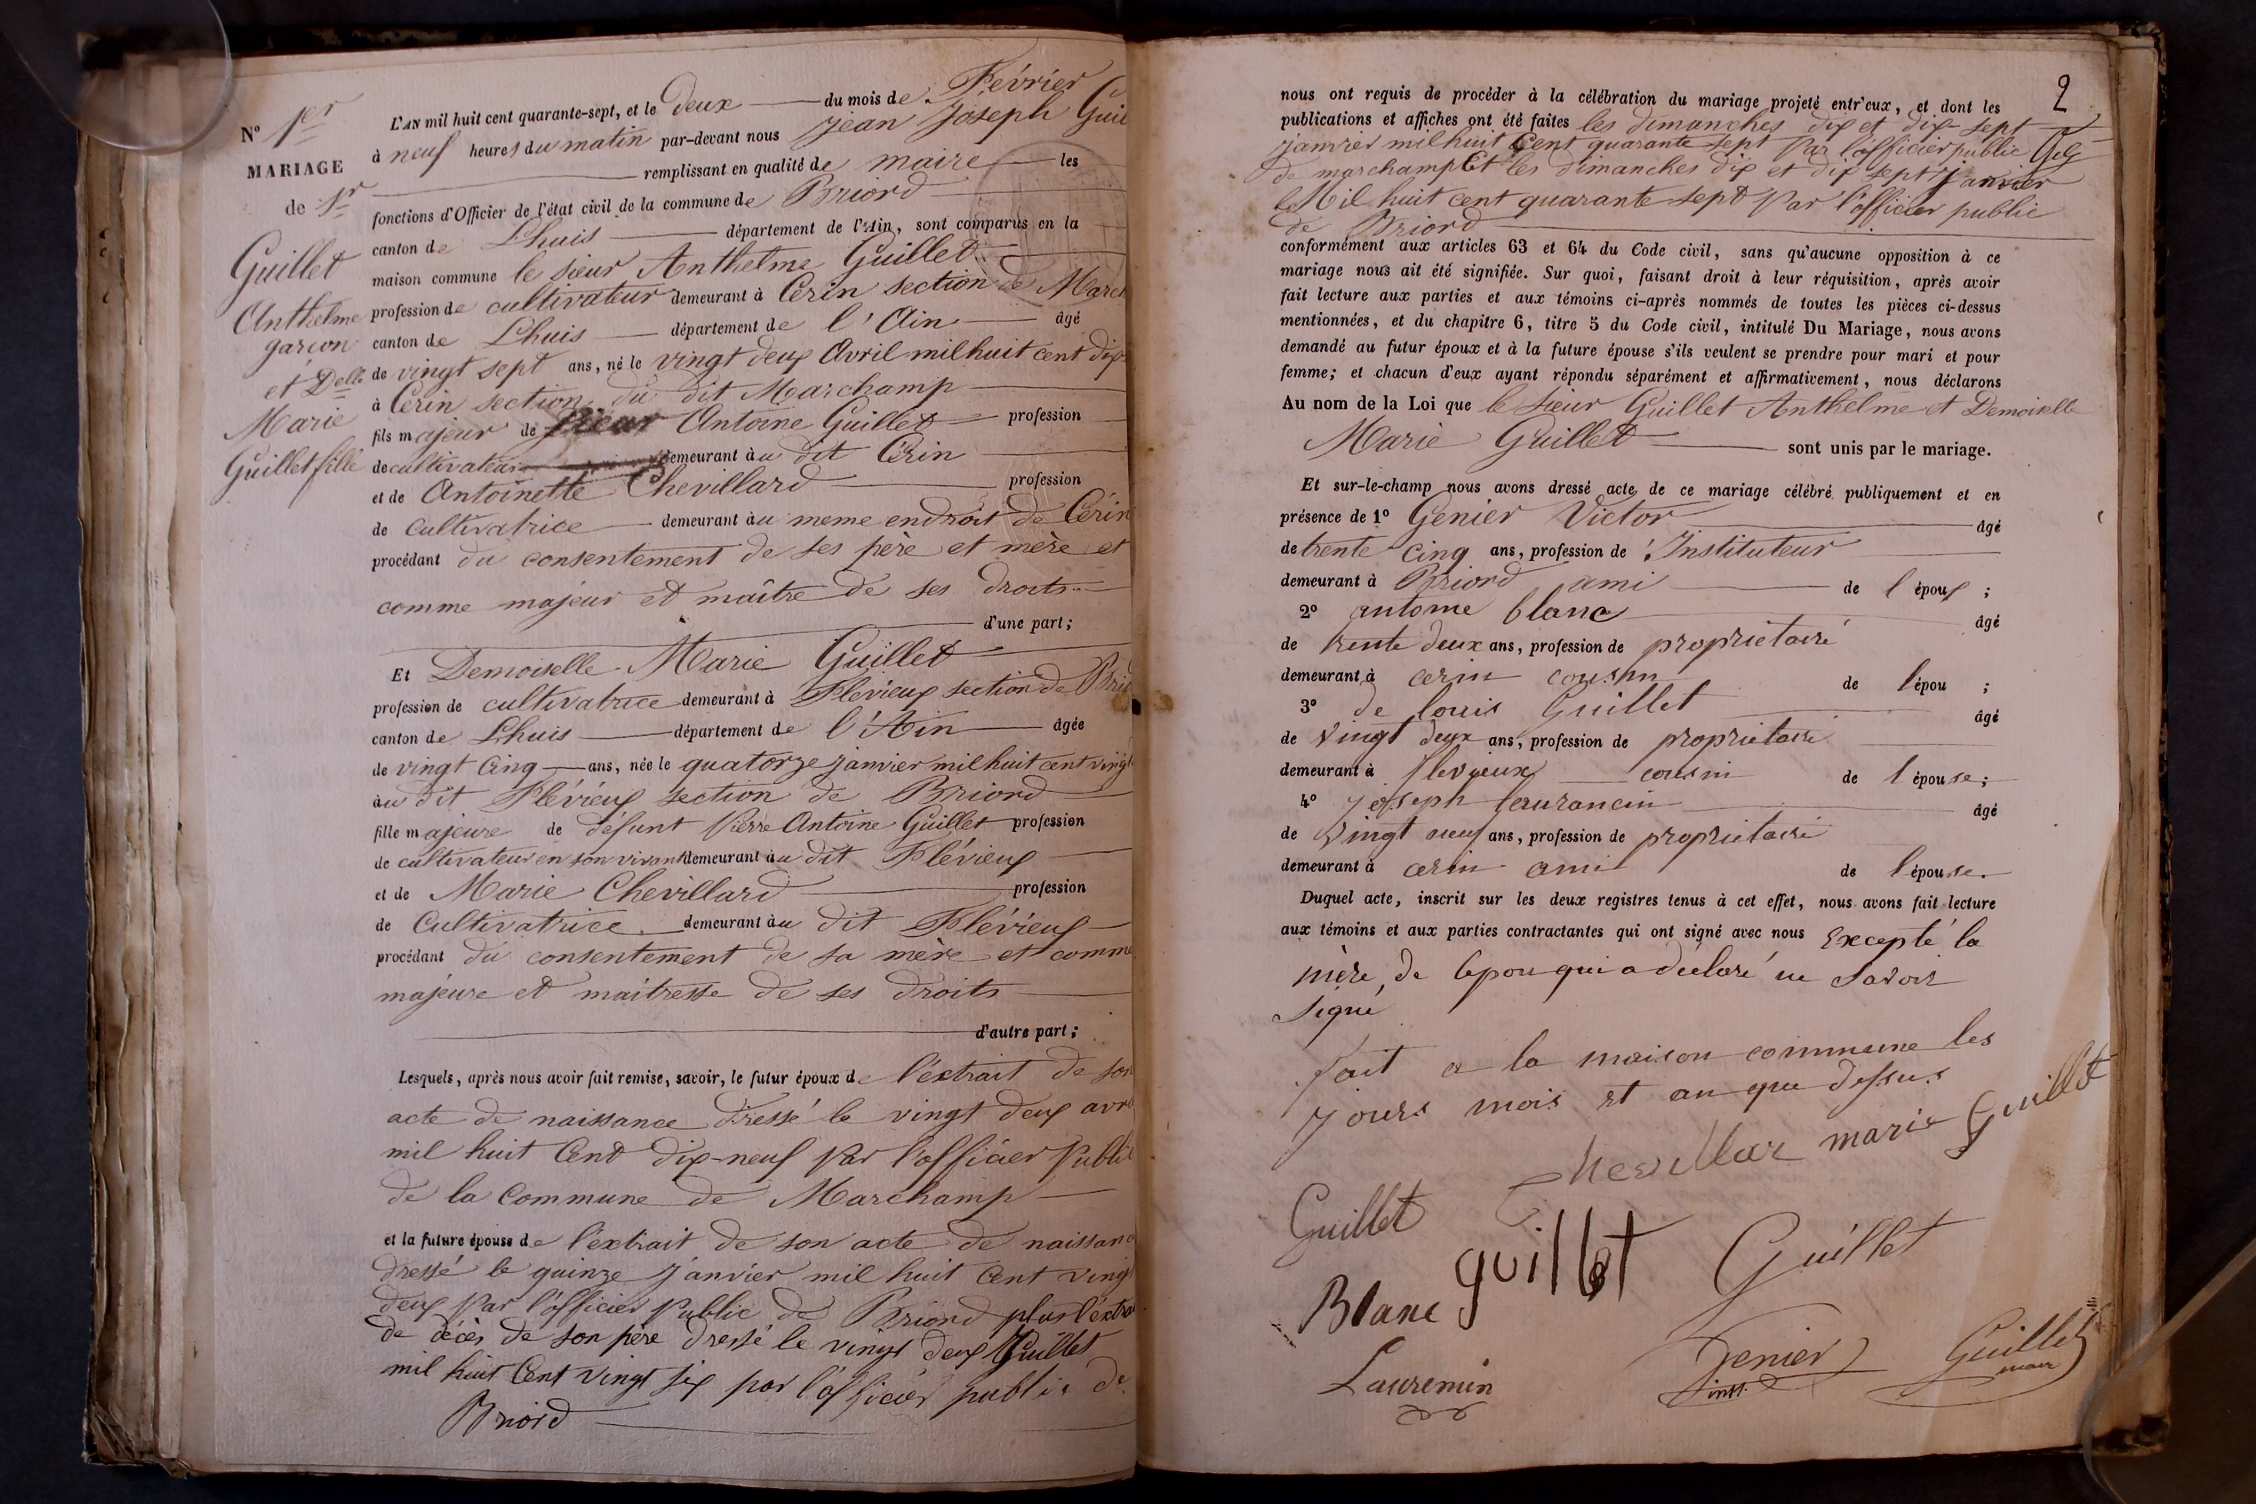 N° 1er
MARIAGE
de Sr
Guillet
Anthelme
garçon
et Delle
Marie
Guillet fille
L'AN mil huit cent quarante-sept, et le deux du mois de Février
à neuf heures du matin par-devant nous Jean Joseph Guil
remplissant en qualité de maire les
fonctions d'Officier de l'état civil de la commune de Briord
canton de Lhuis département de l'Ain, sont comparus en la
maison commune le sieur Anthelme Guillet
profession de cultivateur demeurant à Cerin section de March
canton de Lhuis département de l'Ain âgé
de vingt sept ans, né le vingt deux Avril mil huit cent dix
à Cerin section du dit Marchamp
fils majeur de sieur Antoine Guillet profession
de cultivateur demeurant au dit Cerin
et de Antoinette Chevillard profession
de cultivatrice demeurant au meme endroit de Cérin
procédant du consentement de ses père et mère et
comme majeur et maître de ses droits
d'une part;
Et Demoiselle Marie Guillet
profession de cultivatrice demeurant à Flévieux section de Brio
canton de Lhuis département de l'Ain âgée
de vingt cinq ans, née le quatorze janvier mil huit cent vingt
au dit Flévieux section de Briord
fille majeure de défunt Pierre Antoine Guillet profession
de cultivateur en son vivant demeurant au dit Flévieux
et de Marie Chevillard profession
de Cultivatrice demeurant au dit Flévieux
procédant du consentement de sa mère et comme
majeure et maitresse de ses droits
d'autre part;
Lesquels, après nous avoir fait remise, savoir, le futur époux de l'extrait de son
acte de naissance dressé le vingt deux avril
mil huit Cent dix-neuf par l'officier Public
de la Commune de Marchamp
et la future épouse de l'extrait de son acte de naissance
dressé le quinze janvier mil huit Cent vingt
deux par l'officier public de Briord plus l'extrai
de décès de son père dressé le vingt deux Juillet
mil huit Cent vingt six par l'officier public de
Briord
2
nous ont requis de procéder à la célébration du mariage projeté entr'eux, et dont les
publications et affiches ont été faites les dimanches dix et dix-sept
janvier mil huit Cent quarante sept Par l'officier public
de marchamp Et les dimanches dix et dix sept janvier
Mil huit cent quarante sept Par l'officier public
de Briord
conformément aux articles 63 et 64 du Code civil, sans qu'aucune opposition à ce
mariage nous ait été signifiée. Sur quoi, faisant droit à leur réquisition, après avoir
fait lecture aux parties et aux témoins ci-après nommés de toutes les pièces ci-dessus
mentionnées, et du chapitre 6, titre 5 du Code civil, intitulé Du Mariage, nous avons
demandé au futur époux et à la future épouse s'ils veulent se prendre pour mari et pour
femme; et chacun d'eux ayant répondu séparément et affirmativement, nous déclarons
Au nom de la Loi que le sieur Guillet Anthelme et Demoiselle
Marie Guillet sont unis par le mariage.
Et sur-le-champ nous avons dressé acte de ce mariage célébré publiquement et en
présence de 1° Genier Victor âgé
de trente cinq ans, profession de Instituteur
demeurant à Briord ami de l'époux ;
2° antoine blanc âgé
de trente deux ans, profession de proprietaire
demeurant à cerin cousin de l'épou ;
3° de louis Guillet âgé
de Vingt deux ans, profession de proprietaire
demeurant à flevieux cousin de l'épouse ;
4° joseph laurancin âgé
de Vingt neuf ans, profession de proprietaire
demeurant à cerin ami de l'épouse.
Duquel acte, inscrit sur les deux registres tenus à cet effet, nous avons fait lecture
aux témoins et aux parties contractantes qui ont signé avec nous Excepté la
mère de lepou qui a déclaré ne Savoir
Signé
fait a la maison commune les
jours mois et an que dessus
Chevillar marie Guillet
Guillet
guillet
Guillet
Blanc
Genier
inst.
Guillet
maire
Lauremin